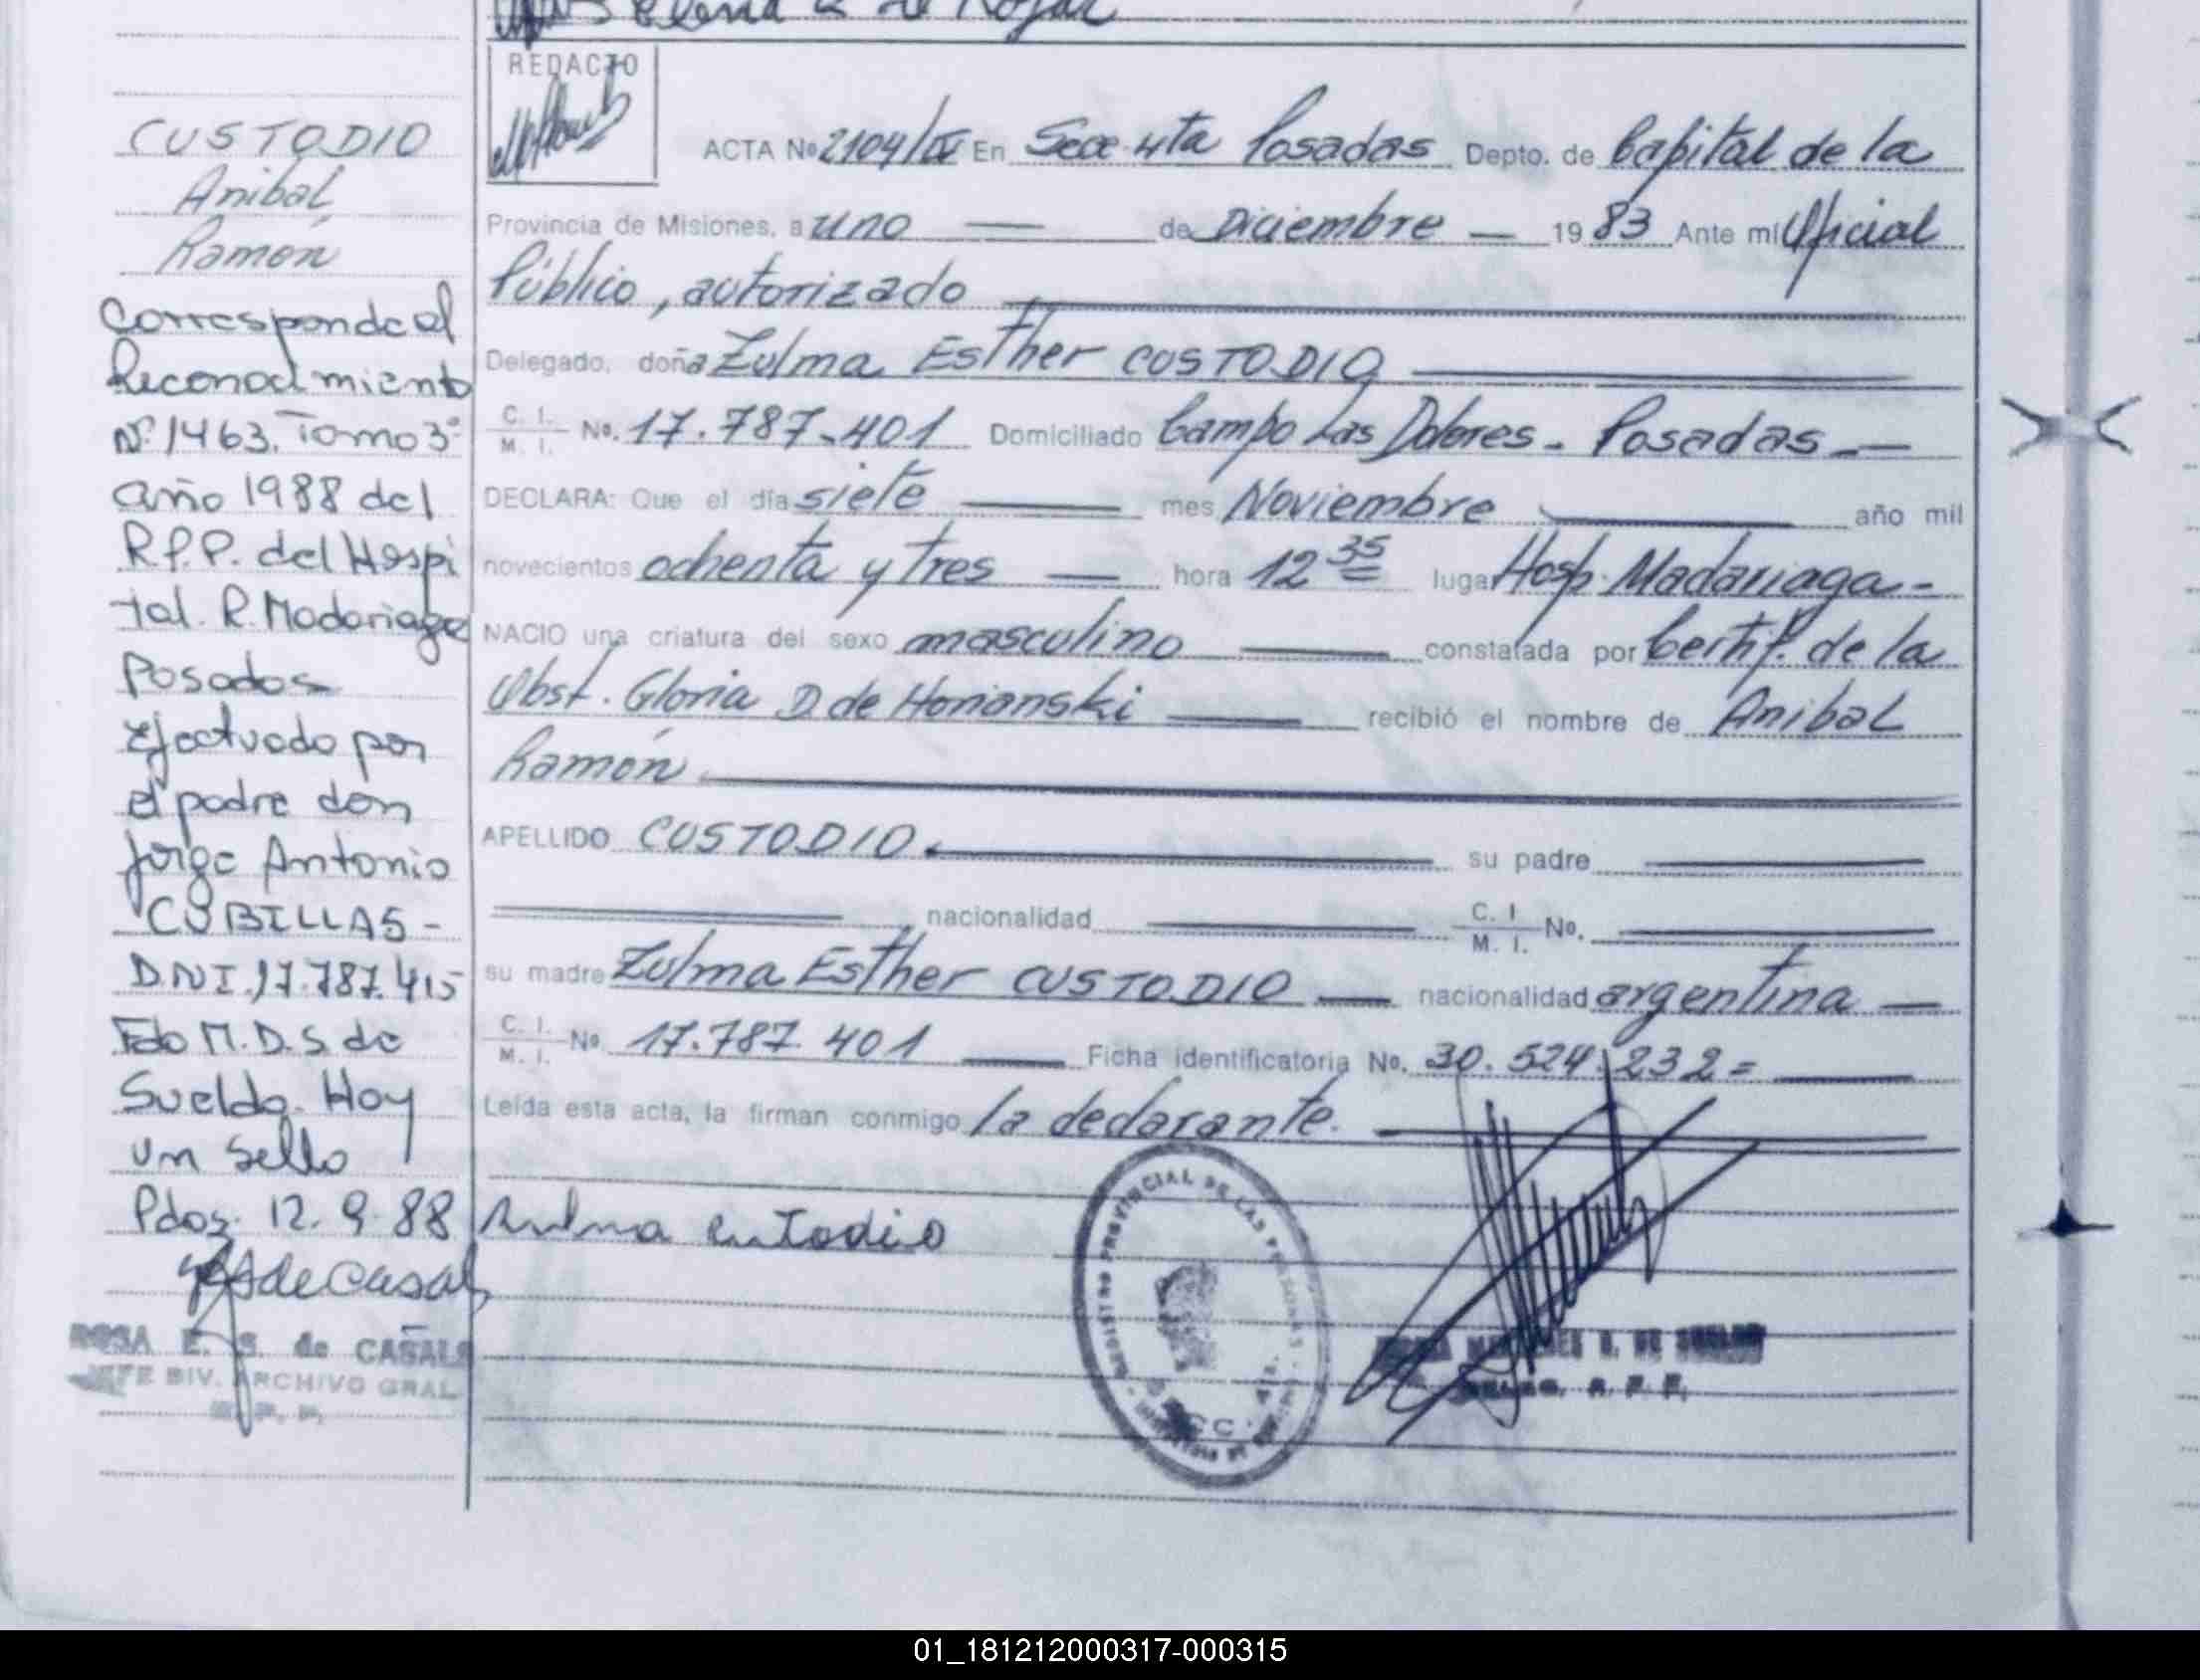 Elena R de Rojas
REDACTO
ACTA Nº 2104/IV En Secc 4ta Posadas Depto. de Capital de la
Provincia de Misiones, a uno de Diciembre 1983 Ante mi Oficial
Público, autorizado
Delegado, doña Zulma Esther CUSTODIO
C. I. M. I. No. 17.787.401 Domiciliado Campo Las Dolores - Posadas
DECLARA: Que el día siete mes Noviembre año mil
novecientos ochenta y tres hora 12 35 lugar Hosp. Madariaga -
NACIO una criatura del sexo masculino constatada por Certif. de la
Obst. Gloria D. de Honanski recibió el nombre de Anibal
Ramón
APELLIDO CUSTODIO. su padre
nacionalidad C. I M. I. No.
su madre Zulma Esther CUSTODIO nacionalidad argentina
C. I. M. I. No. 17.787.401 Ficha identificatoria No. 30.524.232=
Leída esta acta, la firman conmigo la declarante.
Zulma Custodio
REGISTRO PROVINCIAL DE LAS PERSONAS
SECC. 4ta.
DE
DELEG. R. P. P.
CUSTODIO
Anibal
Ramón
Corresponde al
Reconocimiento
Nº 1463. Tomo 3º
año 1988 del
R.P.P. del Hospi
tal. R. Madariaga
Posadas
Efectuado por
el padre don
Jorge Antonio
CUBILLAS -
D.N.I. 17.787.415
Fdo M.D.S. de
Sueldo. Hoy
un sello
Pdas. 12.9.88
de Casals
ROSA E. S. de CASALS
JEFE DIV. ARCHIVO GRAL
R. P. P.
01_181212000317-000315